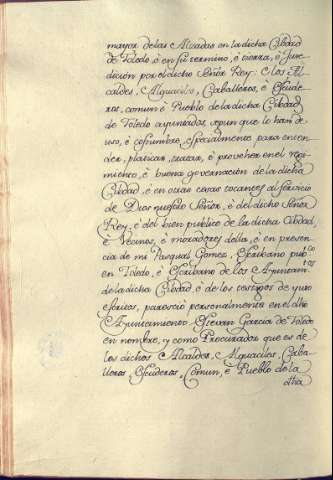 mayor de las Alzadas en la dicha Cibdad
de Toledo, è en su termino, è tierra, è Juri-
dicion por el dicho Señor Rey: è los Al-
caldes, Alguacilos, Caballeros, è Escude-
ros, comun è Pueblo de la dicha Cibdad
de Toledo ayuntados, segun que lo han de
uso, è costumbre, especialmente para enten-
der, platicar, tratar, è proveher en el regi-
miento, è buena governacion de la dicha
Cibdad, è en otras cosas tocantes al servicio
de Dios nuestro Señor, è del dicho Señor
Rey, è del bien publico de la dicha Cibdad,
è Vecinos, è moradores della, è en presen-
cia de mi Pasqual Gomez, Escribano pub.co
en Toledo, è Escribano de los Ayuntam.tos
de la dicha Cibdad, è de los testigos de yuso
escritos, paresciò personalmente en el dho
Ayuntamiento Estevan Garcia de Toledo
en nombre, y como Procurador que es de
los dichos Alcaldes, Alguaciles, Caba-
lleros, Escuderos, Comun, è Pueblo de la
dha